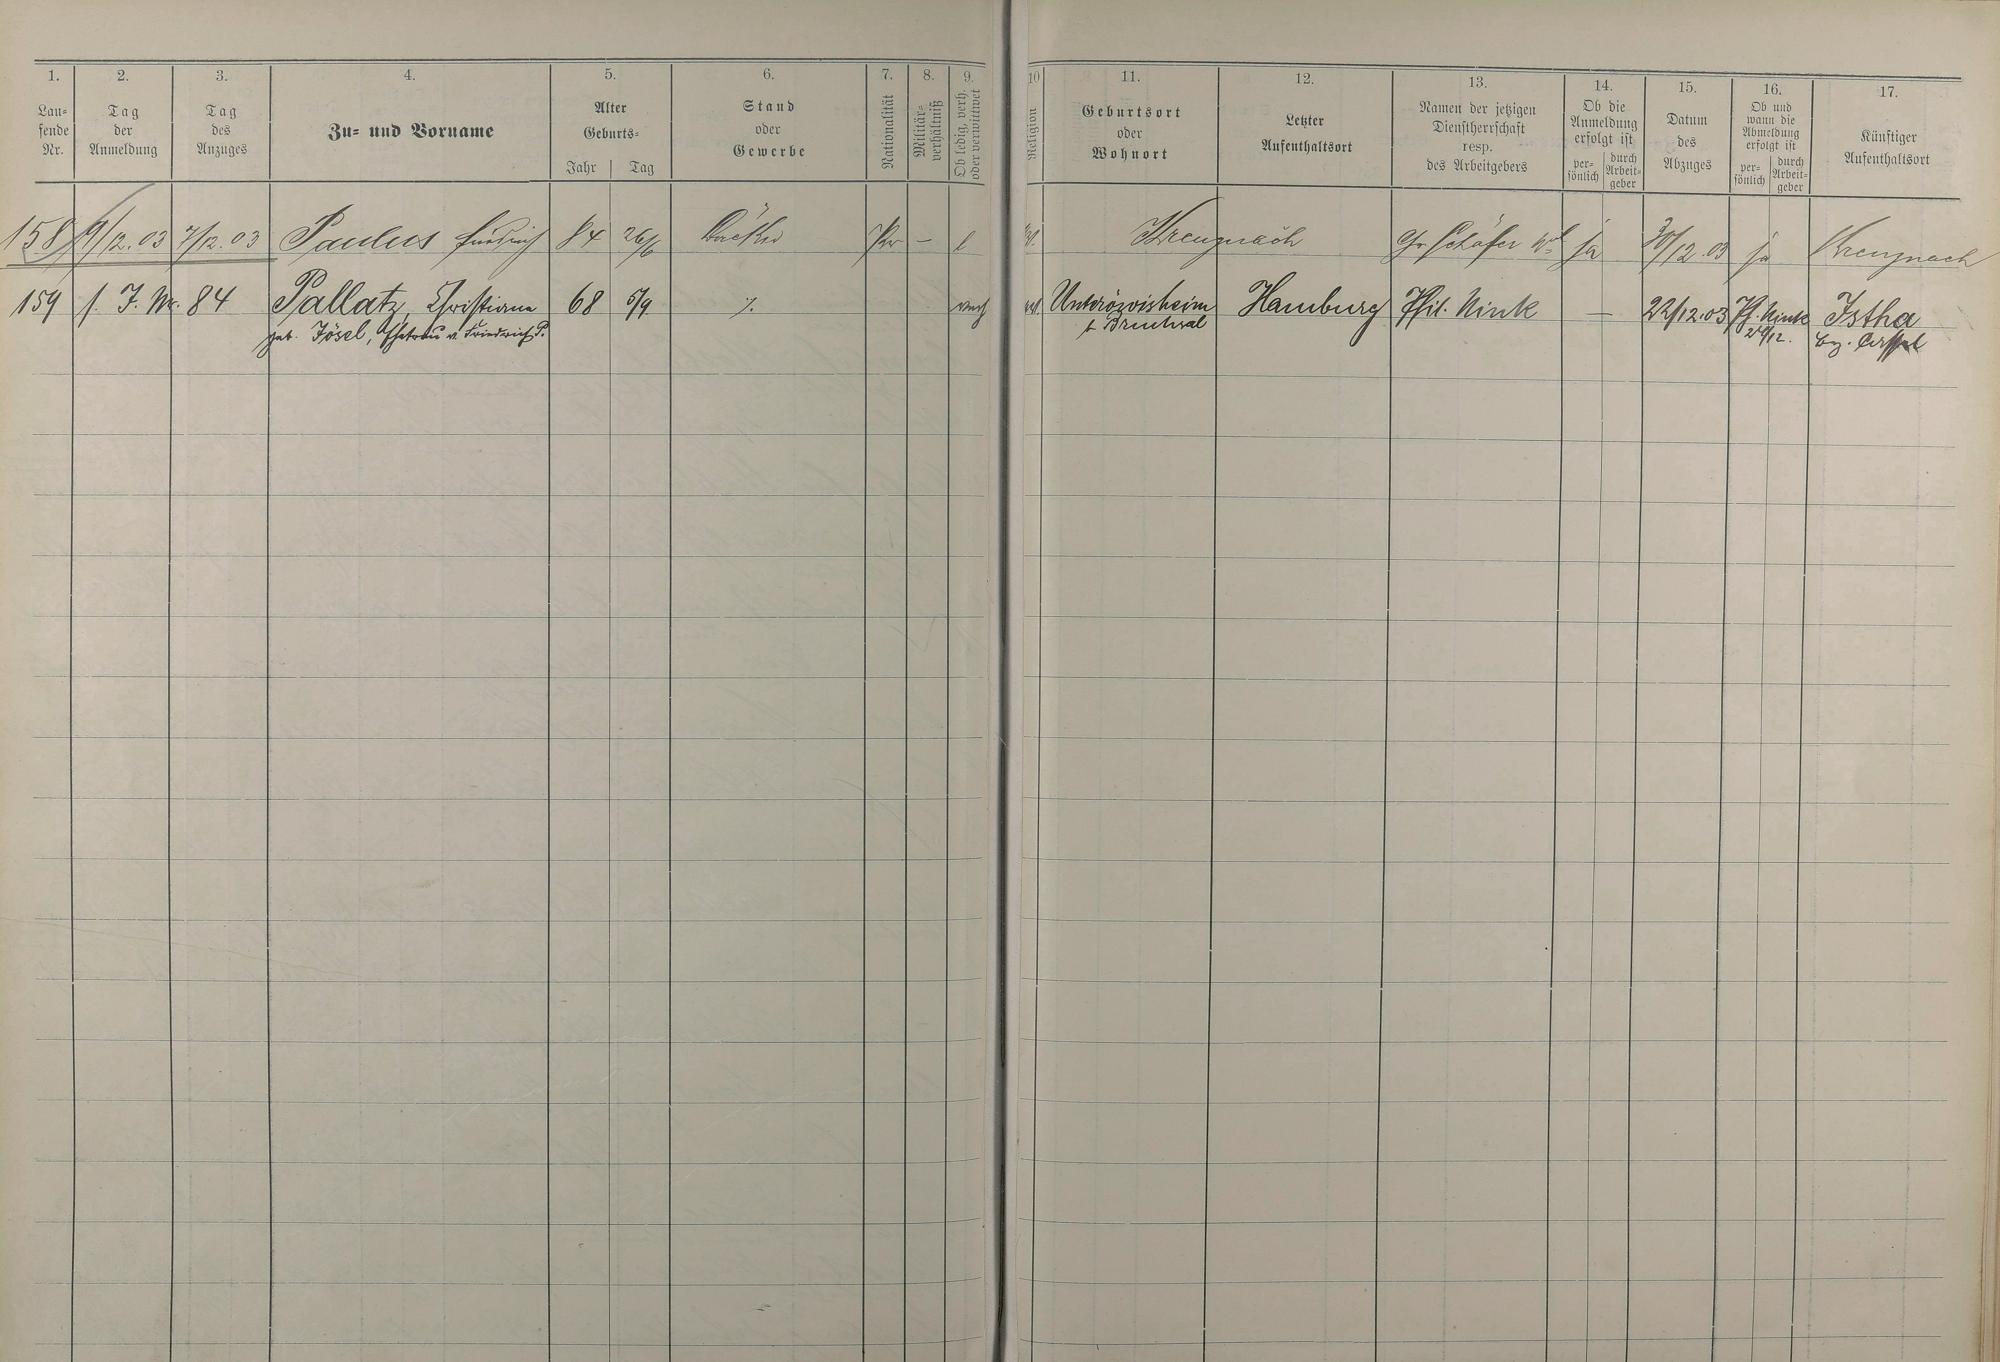 1. 2. 3. 4. 5. 6. 7. 8. 9. 10 11. 12. 13. 14. 15. 16. 17.
Lau=
fende
Nr.
Tag
der
Anmeldung
Tag
des
Anzuges
Zu= und Vorname
Alter
Geburts=
Jahr Tag
Stand
oder
Gewerbe
Nationalität
Militär=
verhältniß
Ob ledig, verh.
oder verwittwet
Religion
Geburtsort
oder
Wohnort
Letzter
Aufenthaltsort
Namen der jetzigen
Dienstherrschaft
resp.
des Arbeitgebers
Ob die
Anmeldung
erfolgt ist
per=
sönlich
durch
Arbeit=
geber
Datum
des
Abzuges
Ob und
wann die
Abmeldung
erfolgt ist
per=
sönlich
durch
Arbeit=
geber
Künftiger
Aufenthaltsort
158 9/12.03 7/12.03 Paulus Friedrich 84 26/6 Bäcker Pr — l Kreuznach Schäfer ja 30/12.03 ja Kreuznach
159 s. J. Nr. 84 Pallatz, Christiane 68 5/9 ·/. verh Unteröwisheim Hamburg Phil. Nink — 22/12.03 Ph. Nink Istha
geb. Jösel, Ehefrau v. Friedrich P. b Bruchsal 24/12. bz. Cassel